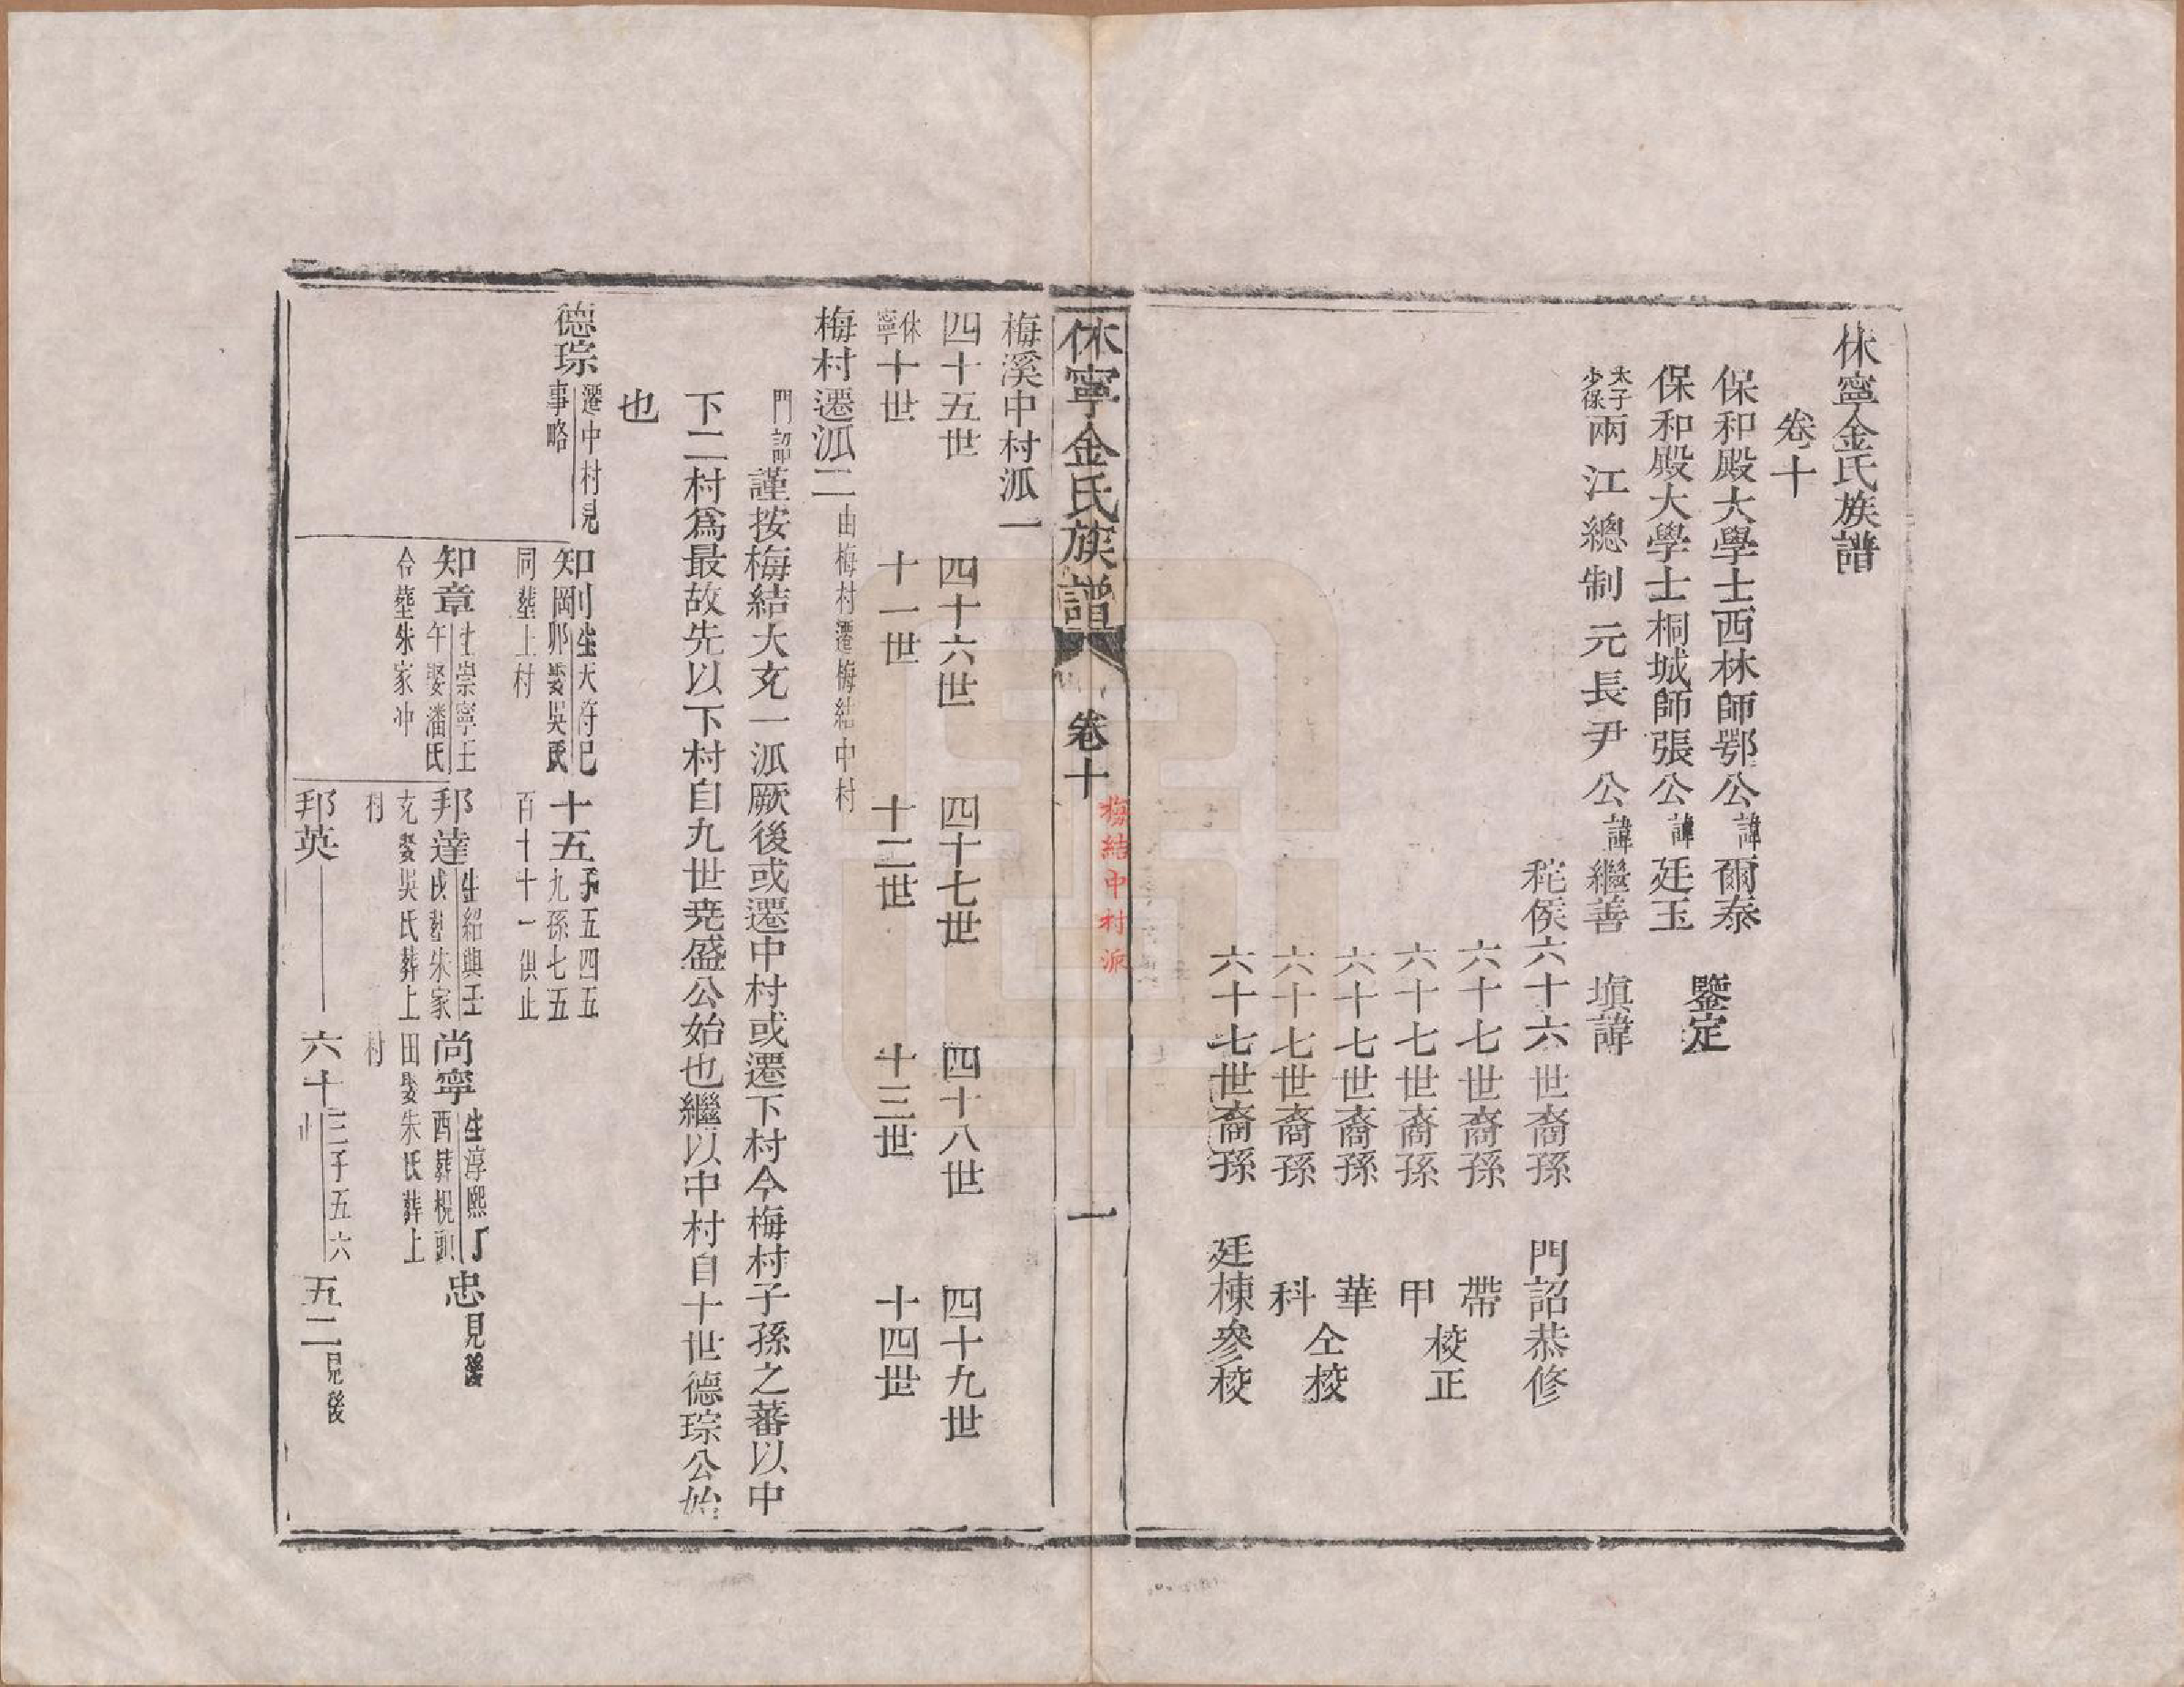 休寧金氏族譜
卷十
保和殿大學士西林師鄂公諱爾泰
保和殿大學士桐城師張公諱廷玉
鑒定
太子少保兩江總制元長尹公諱繼善 填諱
秺侯六十六世裔孫 門詔恭修
六十七世裔孫 帶
六十七世裔孫 甲
校正
六十七世裔孫 華
六十七世裔孫 科
仝校
六十七世裔孫 廷棟參校
休寧金氏族譜 卷十 一
梅結中村派
梅溪中村派一
四十五世 四十六世 四十七世 四十八世 四十九世
休寧十世 十一世 十二世 十三世 十四世
梅村遷派二由梅村遷梅結中村
門詔謹按梅結大支一派厥後或遷中村或遷下村今梅村子孫之蕃以中
下二村爲最故先以下村自九世堯盛公始也繼以中村自十世德琮公始
也
德琮遷中村見事略
知剛生大符巳卯娶吳氏同塟上村
十五子五四五九孫七五百十十一俱止
知章生崇寧壬午娶潘氏合塟朱家冲
邦達生紹興壬戌塟朱家充娶吳氏葬上村
尚寧生淳熙丁酉葬梘頭田娶朱氏葬上村
忠見後
邦英
六十三子五六止
五二見後